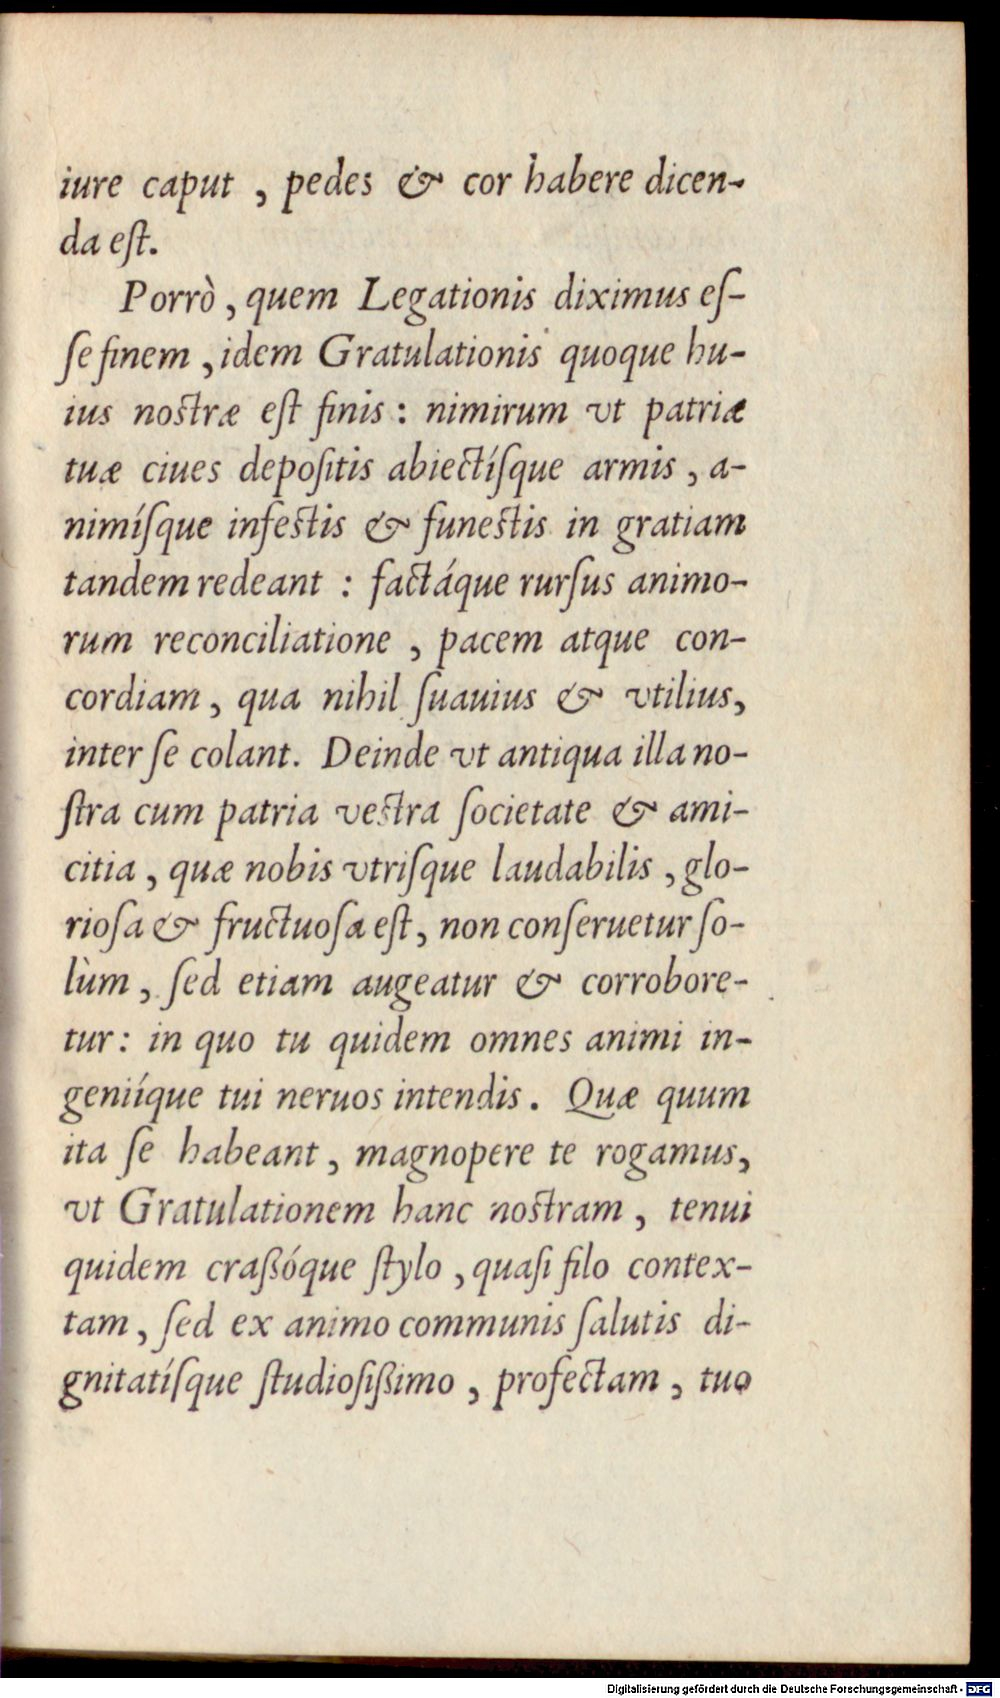 iure caput , pedes & cor habere dicen-
da eſt.
Porrò , quem Legationis diximus eſ-
ſe finem , idem Gratulationis quoque hu-
ius noſtræ eſt finis : nimirum vt patriæ
tuæ ciues depoſitis abiectíſque armis , a-
nimíſque infeſtis & funeſtis in gratiam
tandem redeant : factáque rurſus animo-
rum reconciliatione , pacem atque con-
cordiam , qua nihil ſuauius & vtilius,
inter ſe colant. Deinde vt antiqua illa no-
ſtra cum patria veſtra ſocietate & ami-
citia , quæ nobis vtriſque laudabilis , glo-
rioſa & fructuoſa eſt , non conſeruetur ſo-
lùm , ſed etiam augeatur & corrobore-
tur : in quo tu quidem omnes animi in-
geniíque tui neruos intendis . Quæ quum
ita ſe habeant , magnopere te rogamus,
vt Gratulationem hanc noſtram , tenui
quidem craßóque ſtylo , quaſi filo contex-
tam , ſed ex animo communis ſalutis di-
gnitatíſque ſtudioſißimo , profectam , tuo
Digitalisierung gefördert durch die Deutsche Forschungsgemeinschaft - DFG